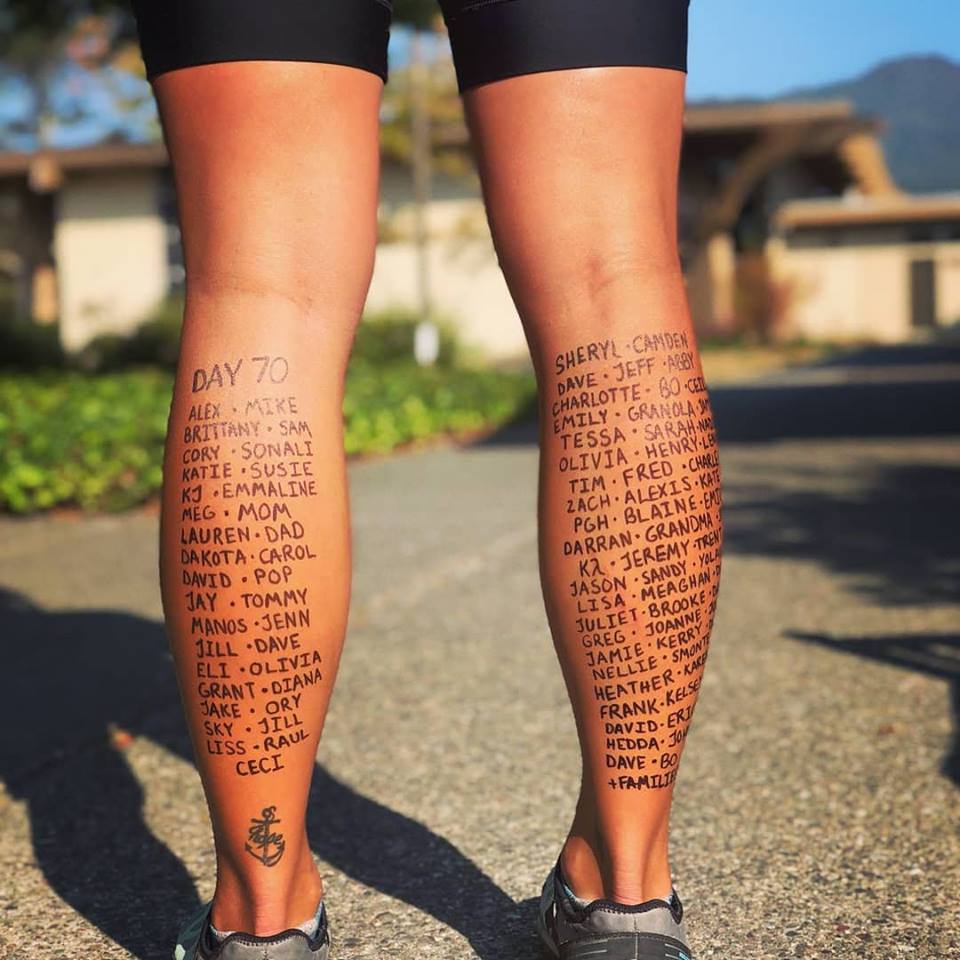 DAY 70
ALEX · MIKE
BRITTANY · SAM
CORY · SONALI
KATIE · SUSIE
KJ · EMMALINE
MEG · MOM
LAUREN · DAD
DAKOTA · CAROL
DAVID · POP
JAY · TOMMY
MANOS · JENN
JILL · DAVE
ELI · OLIVIA
GRANT · DIANA
JAKE · ORY
SKY · JILL
LISS · RAUL
CECI
Hope
SHERYL · CAMDEN
DAVE · JEFF · ABBY
CHARLOTTE · BO ·
EMILY · GRANOLA ·
TESSA · SARAH ·
OLIVIA · HENRY ·
TIM · FRED ·
ZACH · ALEXIS ·
PGH · BLAINE ·
DARRAN · GRANDMA ·
K2 · JEREMY ·
JASON · SANDY ·
LISA · MEAGHAN ·
JULIET · BROOKE ·
GREG · JOANNE ·
JAMIE · KERRY ·
NELLIE ·
HEATHER ·
FRANK ·
DAVID ·
HEDDA ·
DAVE · BO